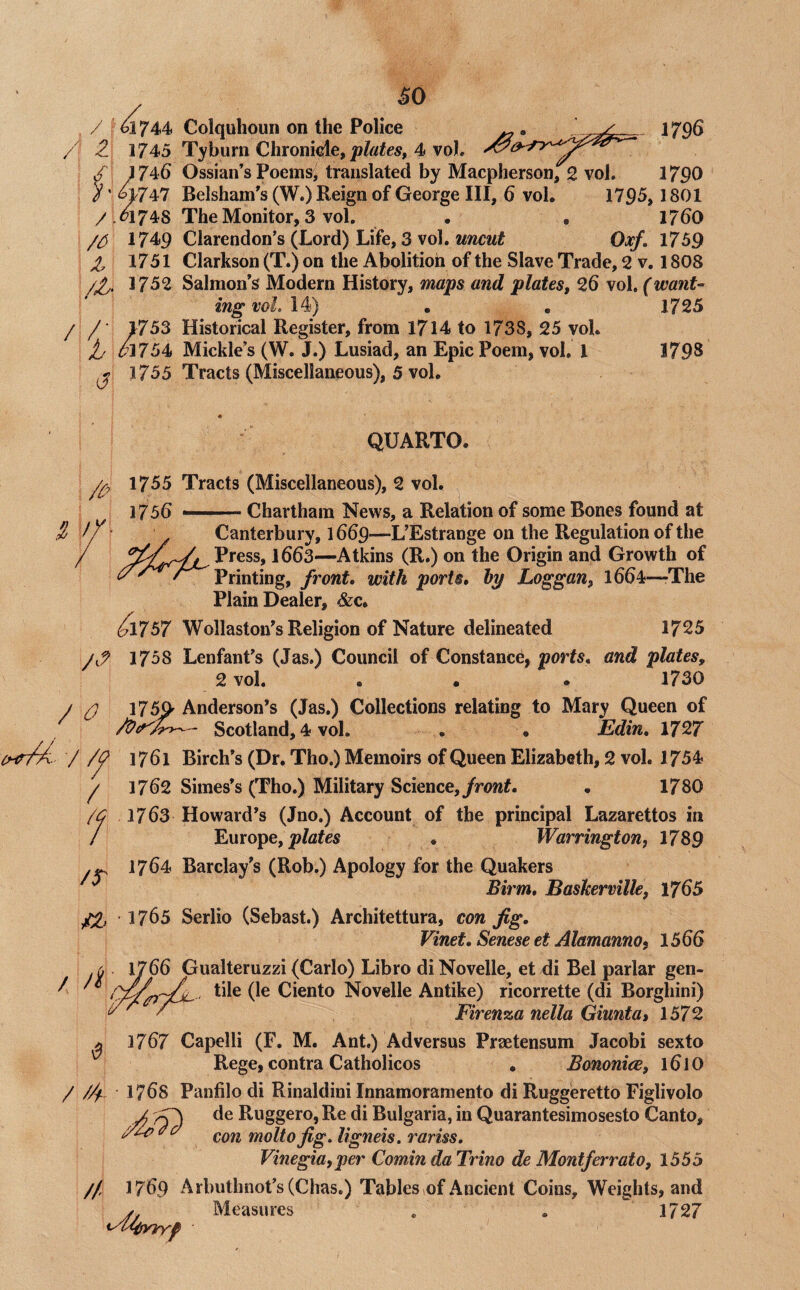 50
/ 61744 Colquhoun on the Police 1796
/ 2 1745 Tyburn Chronicle, plates, 4 vol.
1746 Ossian's Poems, translated by Macpherson, 2 vol. 1790
1747 Belsham's (W.) Reign of George III, 6 vol. 1795, 1801
/ 61748 The Monitor, 3 vol. . . 1760
1749 Clarendon's (Lord) Life, 3 vol. uncut Oxf. 1759
2 1751 Clarkson (T.) on the Abolition of the Slave Trade, 2 v. 1808
12 1752 Salmon's Modern History, maps and plates, 26 vol. (want-
ing vol. 14) . . 1725
/ / 1753 Historical Register, from 1714 to 1738, 25 vol.
61754 Mickle's (W. J.) Lusiad, an Epic Poem, vol. 1 1798
3 1755 Tracts (Miscellaneous), 5 vol.
QUARTO.
1755 Tracts (Miscellaneous), 2 vol.
1756 ——— Chartham News, a Relation of some Bones found at
Canterbury, 1669—L'Estrange on the Regulation of the
Press, 1663—Atkins (R.) on the Origin and Growth of
Printing, front. with ports. by Loggan, 1664—The
Plain Dealer, &c.
61757 Wollaston's Religion of Nature delineated 1725
1758 Lenfant's (Jas.) Council of Constance, ports. and plates,
2 vol. . . . 1730
/ 0 1759 Anderson's (Jas.) Collections relating to Mary Queen of
Scotland, 4 vol. . . Edin. 1727
1761 Birch's (Dr. Tho.) Memoirs of Queen Elizabeth, 2 vol. 1754
/ 1762 Simes's (Tho.) Military Science, front. . 1780
1763 Howard's (Jno.) Account of the principal Lazarettos in
Europe, plates . Warrington, 1789
15 1764 Barclay's (Rob.) Apology for the Quakers
Birm. Baskerville, 1765
12 1765 Serlio (Sebast.) Architettura, con fig.
Vinet. Senese et Alamanno, 1566
1766 Gualteruzzi (Carlo) Libro di Novelle, et di Bel parlar gen-
tile (le Ciento Novelle Antike) ricorrette (di Borghini)
Firenza nella Giunta, 1572
1767 Capelli (F. M. Ant.) Adversus Prætensum Jacobi sexto
Rege, contra Catholicos . Bononiæ, 1610
/ 14 1768 Panfilo di Rinaldini Innamoramento di Ruggeretto Figlivolo
de Ruggero, Re di Bulgaria, in Quarantesimosesto Canto,
con molto fig. ligneis. rariss.
Vinegia, per Comin da Trino de Montferrato, 1555
11 1769 Arbuthnot's (Chas.) Tables of Ancient Coins, Weights, and
Measures . . 1727